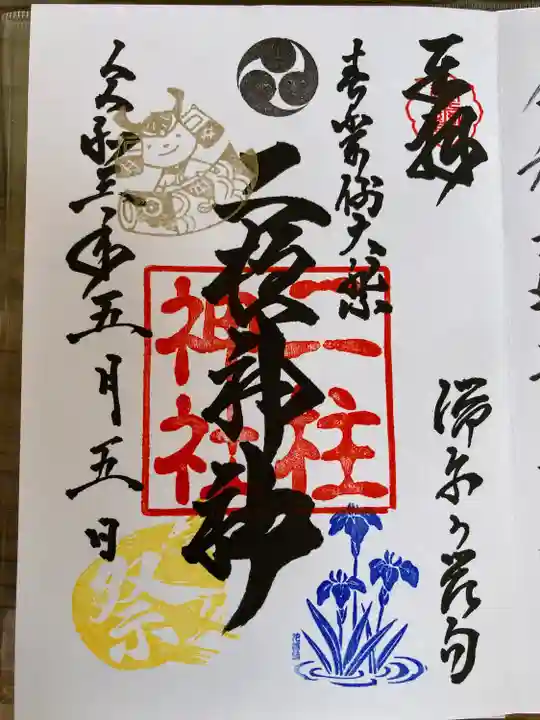 奉拝
端午の節句
春季例大祭
二柱神社
二柱
神社
令和三年五月五日
祭